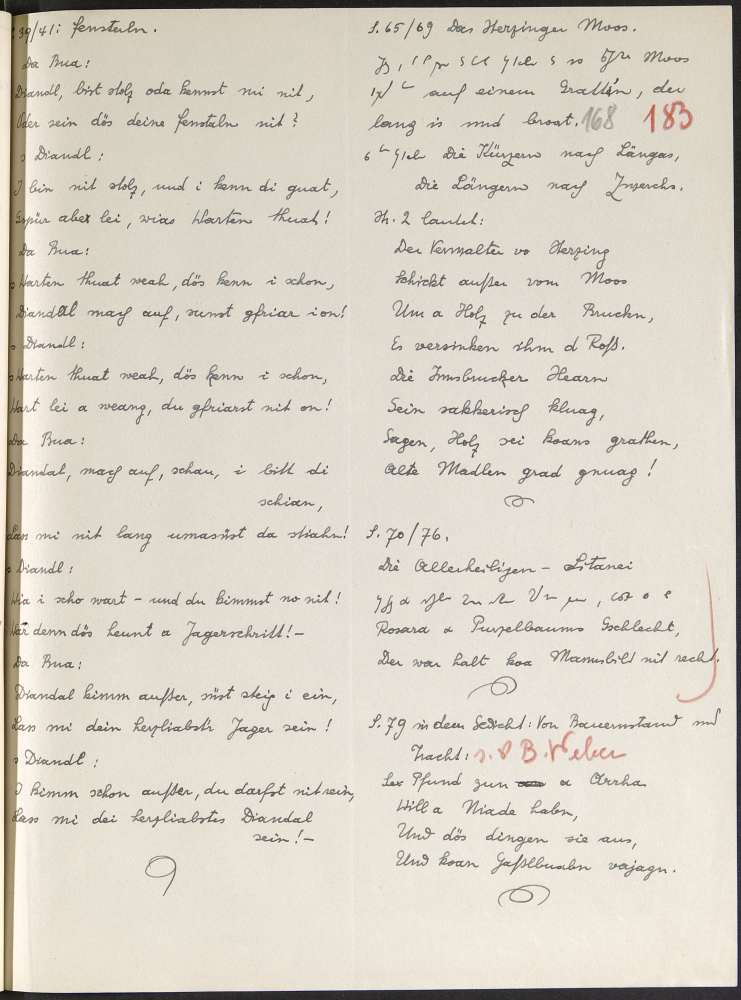 39/41: Fensterln.
Da Bua:
Diandl, bist stolz oda kennst mi nit,
Oder sein dös deine Fensterln nit?
s Diandl:
I bin nit stolz, und i kenn di guat,
Gspür aber lei, wias Warten thuat!
Da Bua:
s Warten thuat weah, dös kenn i schon,
Diandal mach auf, sunst gfriar i on!
s Diandl:
s Warten thuat weah, dös kenn i schon,
Wart lei a weang, du gfriarst nit on!
Da Bua:
Diandal, mach auf, schau, i bitt di
schian,
Lass mi nit lang umasüst da stiahn!
s Diandl:
Wia i scho wart - und du kimmst no nit!
War denn dös heunt a Jagerschritt! -
Da Bua:
Diandal kimm außer, süst steig i ein,
Lass mi dein herzliabstr Jager sein!
s Diandl:
I kimm schon außer, du darfst nit rein,
Lass mi dei herzliabstes Diandal
sein! -
S. 65/69 Das Sterzinger Moos.
Moos
auf einem Grattn, der
lang is und broat. 168 183
Die Kürzern nach Längas,
Die Längern nach Zwerchs.
Str. 2 lautet:
Der Verwalter vo Sterzing
Schickt außer vom Moos
Um a Holz zu der Bruckn,
Es versinken ihm d Roß.
Die Innsbrucker Hearn
Sein sakkerisch kluag,
Sagen, Holz sei koans grathen,
Alte Madlen grad gnuag!
S. 70/76.
Die Allerheiligen - Litanei
Rosara & Purzelbaums Gschlecht,
Der war halt koa Mannsbild nit recht.
S. 79 in dem Gedicht: Von Bauernstand und
Tracht: s. B. Weber
Sex Pfund zun a Arrha
Will a Niade habn,
Und dös dingen sie aus,
Und koan Gaßlbuabn vajagn.